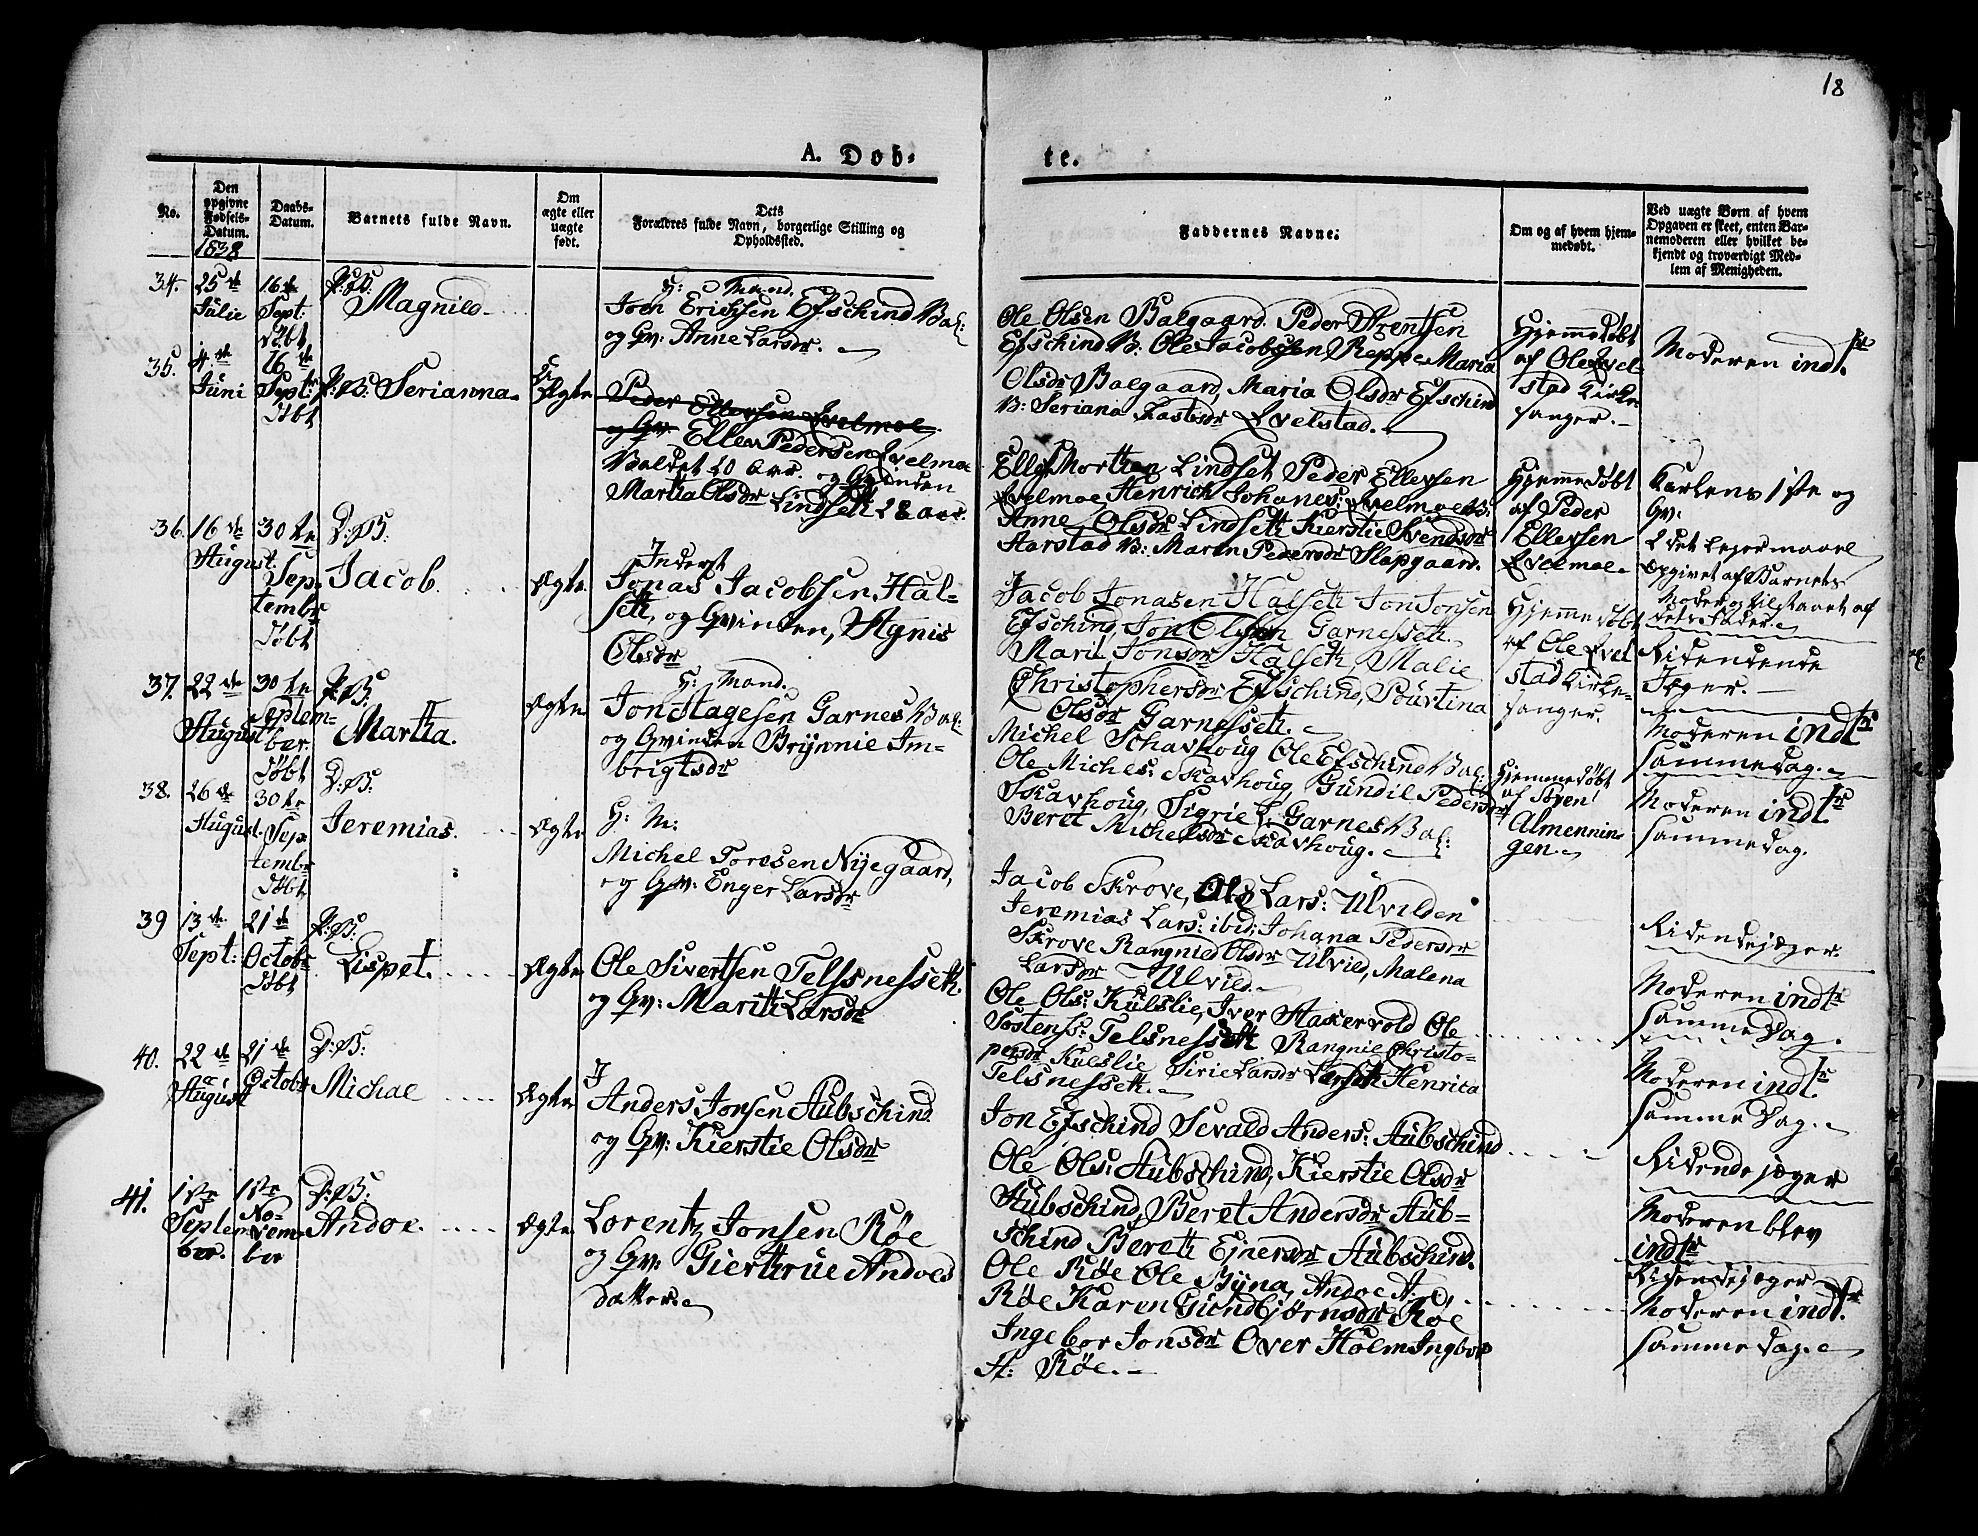 18
A. Døb-
te.
No.
Den
opgivne
Fødsels-
Datum.
1838
Daabs-
Datum.
Barnets fulde Navn.
Om
ægte eller
uægte
født.
Dets
Forældres fulde Navn, borgerlige Stilling og
Opholdssted.
Faddernes Navne.
Om og af hvem hjem-
medøbt.
Ved uægte Børn af hvem
Opgaven er skeet, enten Bar-
nemoderen eller hvilket be-
kjendt og troværdigt Med-
lem af Menigheden.
34.
25de
Julie
16de
Sept:
Døbt
P:B:
Magnild
G: Mand.
Joen Erichsen Efschind Val:
og Gv: Anne Larsdr.
Ole Olsen Balgaard. Peder Arentsen
Efschind V: Ole Jacobsen Reppe Maria
Olsdr Balgaard, Maria Olsdr Efschind
V: Seriana Rasbsdr Qvelstad.
Hjemmedøbt
af Ole Qvel-
stad Kirke-
sanger.
Moderen indtr
35.
4.de
Juni
16de
Septr
Døbt
P:B: Serianna
U
Ægte
Peder Ellevsen Qvelmoe
og Gv: Ellev Pedersen Qvelmoe
Valdet 20 Aar. og Qvinden
Martha Olsdr Lindseth 28 Aar.
Ellef Morthen Lindset Peder Ellevsen
Qvelmoe, Henrich Johanes: Qvelmoe V:
Anne Olsdr Lindseth Kierstie Svendsdr
Aarstad V: Maren Pedersdr Slapgaard.
Hjemmedøbt
af Peder
Ellevsen
Qvelmoe
Karlens 1ste og
Qv:
2det Lejermaal
Opgivet af Barnets
Moder og tilstaaet af
dets Fader.
36.
16de
August
30te
Sep-
tembr
Døbt
D:B:
Jacob.
Ægte
Inderst
Jonas Jacobsen Hal-
seth, og Qvinden, Agnis
Olsdr
Jacob Jonasen Halseth Jon Jonsen
Efschind, Jon Olsen Garnesseth.
Marit Jonsdr Halseth, Malie
Christophersdr Efschind, Pourtina
Olsdr Garnesseth.
Hjemmedøbt
af Ole Qvel
stad Kirke-
sanger.
Ridendende
Jæger.
Moderen indtr
samme dag.
37.
22de
August
30te
Septem-
ber.
Døbt
P:B:
Martha.
Ægte
G: Mand.
Jon Hagesen Garnes Val:
og Qvinden Brynnie Im-
brigtsdr
Michel Schavhoug Ole Efschind Val:
Ole Michels: Skavhoug, Gundil Pedersdr
Skavhoug, Sigrie L: Garnes Val:
Beret Michelsdr Skavhoug.
Hjemmedøbt
af
Almennin-
gen.
Moderen indtr
samme dag.
38.
26de
August.
30te
Sep
tembr
Døbt
D:B:
Jeremias.
Ægte
G: M:
Michel Toresen Nyegaard,
og Gv: Enger Larsdr
Jacob Skrove, Ole Lars: Ulvilden
Jeremias Lars: ibid, Johana Pedersdr
Skrove Rangnild Olsdr Ulvild, Malena
Larsdr Ulvild.
Ridendejæger.
Moderen indtr
samme Dag.
39
13de
Sept:
21de
Octobr
Døbt
P:B:
Lispet.
Ægte
Ole Sivertsen Telssnesseth.
og Gv: Marith Larsdr
Ole Ols: Kulslie, Iver Stakervold Ole
Sostenss: Telsnesseth Rangnie Christo-
persdr Kulslie Sirie Larsdr Larseth Henrica
Telsnesseth.
Moderen indtr
samme Dag.
40.
22de
August
21de
Octobr
D:B:
Michal
Ægte
I
Anders Jonsen Aubschind.
og Gv: Kierstie Olsdr
Jon Efschind Sevald Anders: Aubschind
Ole Ols: Aubschind, Kierstie Olsdr
Aubschind, Beret Andersdr Aub-
schind Bereth Ejnersdr Aubschind.
Ridendejæger
Moderen blev
indtr
41.
1ste
Septem
ber.
1ste
No-
vem-
ber
D:B:
Andor.
Ægte
Lorentz Jonsen Røe
og Gv: Gierthrue Andors
datter.
Ole Røe Ole Byna, Andor A:
Røe Karen Guendbjørnsdr Røe
Ingebor Jonsdr Over Holm Ingbor
A: Røe.
Ridendejæger
Moderen indtr.
samme dag.